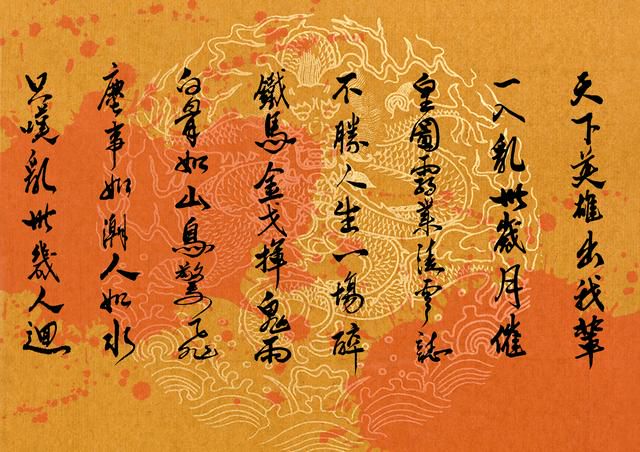 天下英雄出我輩
一入亂世歲月催
皇圖霸業誌
不勝人生一場醉
鐵馬金戈揮鬼雨
白骨如山鳥驚飛
塵事如潮人如水
只嘆亂世幾人迴